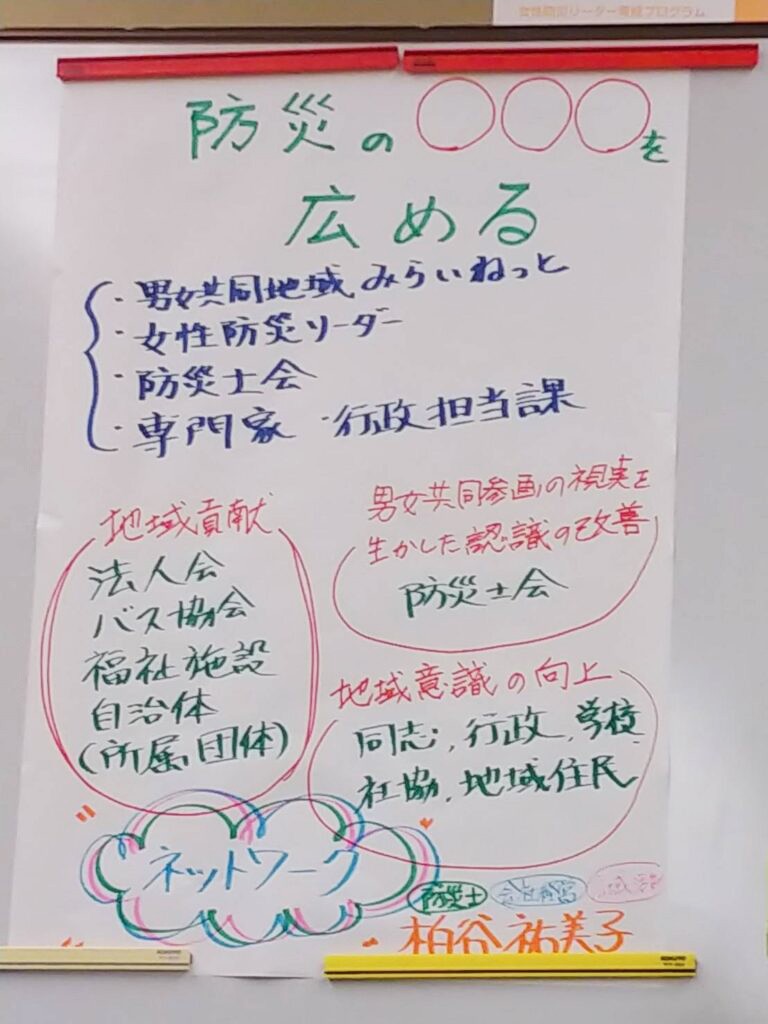 女性防災リーダー育成プログラム
防災の〇〇〇を
広める
・男女共同地域みらいねっと
・女性防災リーダー
・防災士会
・専門家 ・行政担当課
地域貢献
法人会
バス協会
福祉施設
自治体
(所属団体)
男女共同参画の視実を
生かした認識の改善
防災士会
地域意識の向上
同志,行政,学校
社協,地域住民
ネットワーク
防災士
柏谷祐美子
KOKUYO
KOKUYO